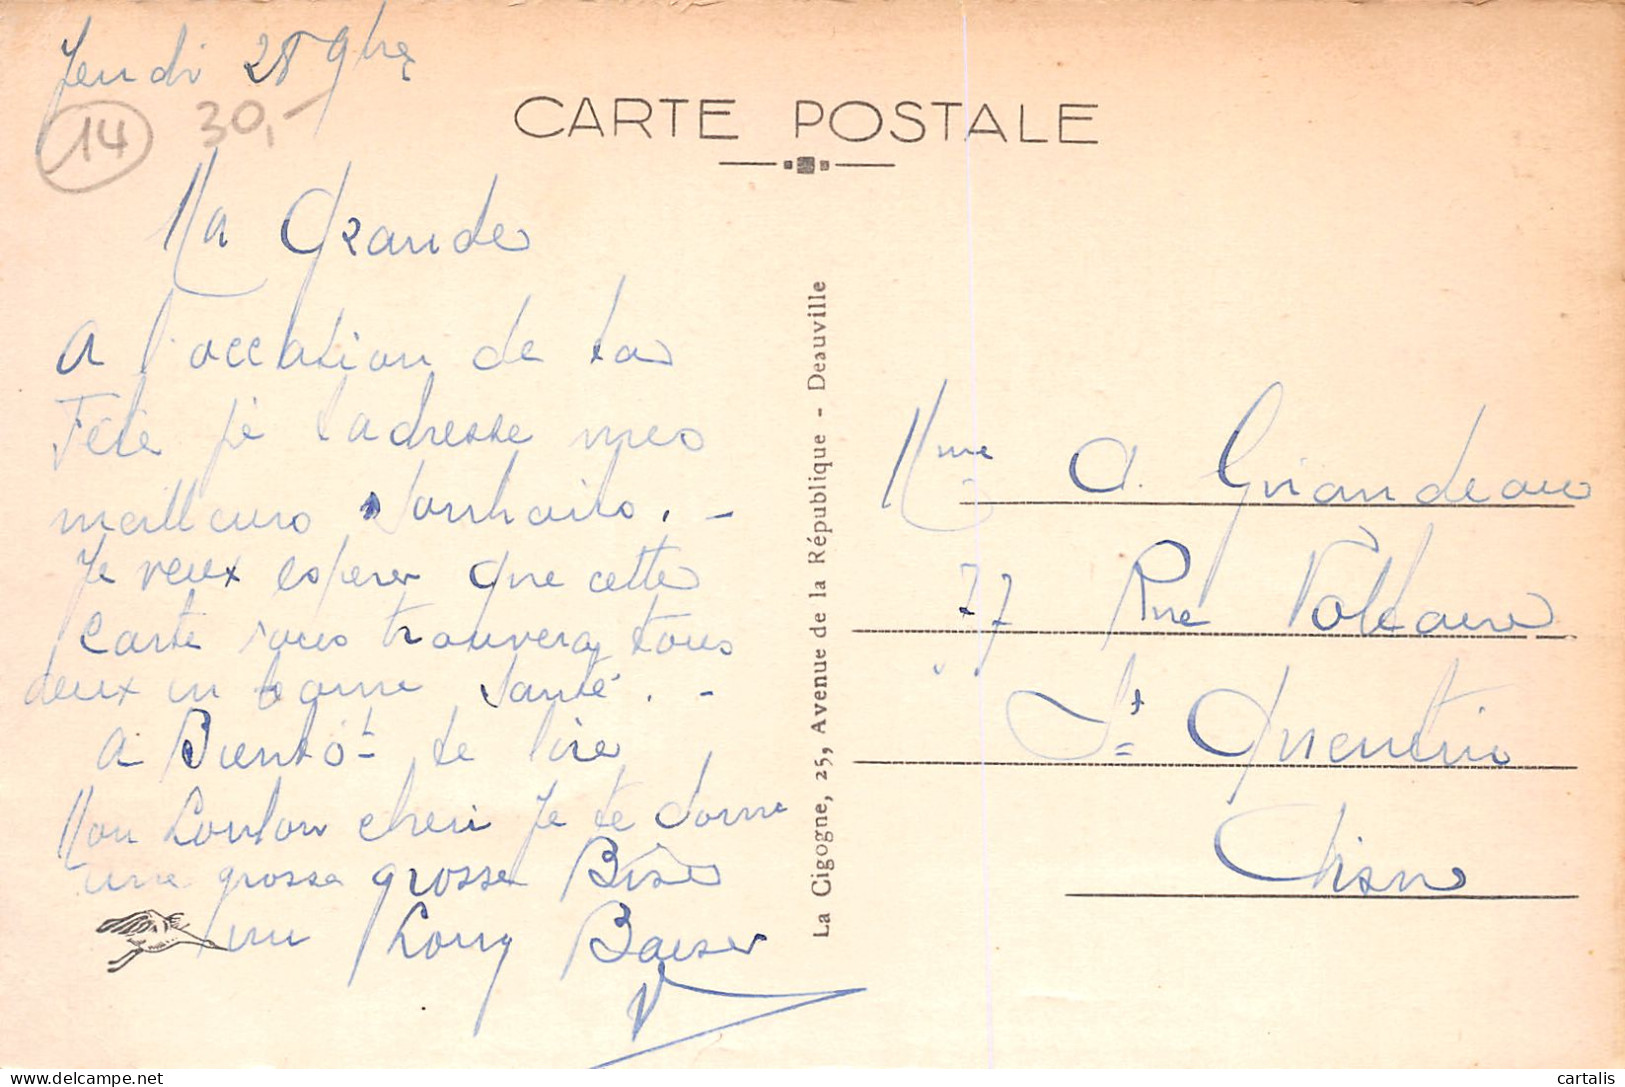 Jeudi 28 9bre
14 30,-
CARTE POSTALE
Ma Grande
A l'occasion de ta
Fête je t'adresse mes
meilleurs Souhaits. -
Je veux espérer que cette
Carte vous trouvera tous
deux en bonne Santé. -
A Bientôt de lire
Mon Loulou cheri Je te donne
une grosse grosse Bise
un Long Baiser
La Cigogne, 25, Avenue de la République - Deauville
Mme A. Girandeau
77 Rue Voltaire
St Quentin
Aisne
delcampe.net
cartalis